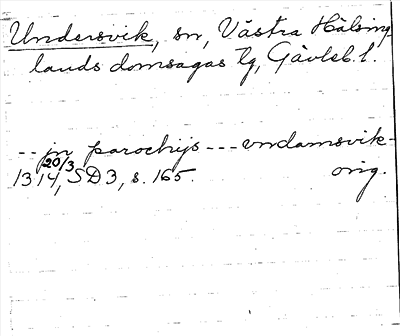 Undersvik, sn, Västra Hälsing-
lands domsagas tg, Gävleb. l.
-- jn parochijs --- vndamsvik-
20/3
1314, SD3, s. 165. orig.